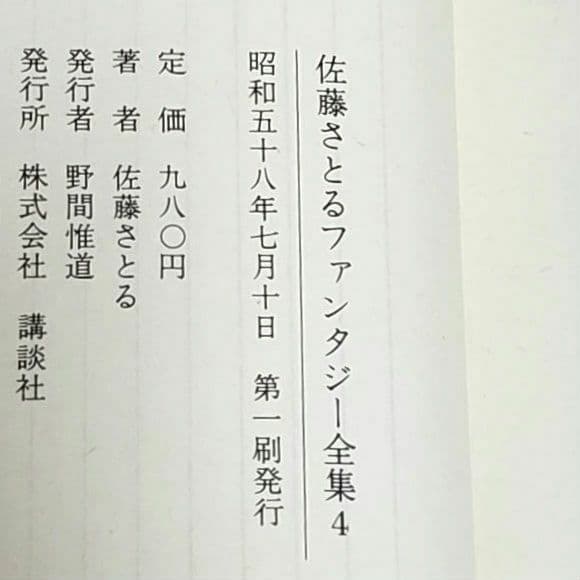 佐藤さとるファンタジー全集4
昭和五十八年七月十日 第一刷発行
定価 九八〇円
著者 佐藤さとる
発行者 野間惟道
発行所 株式会社 講談社